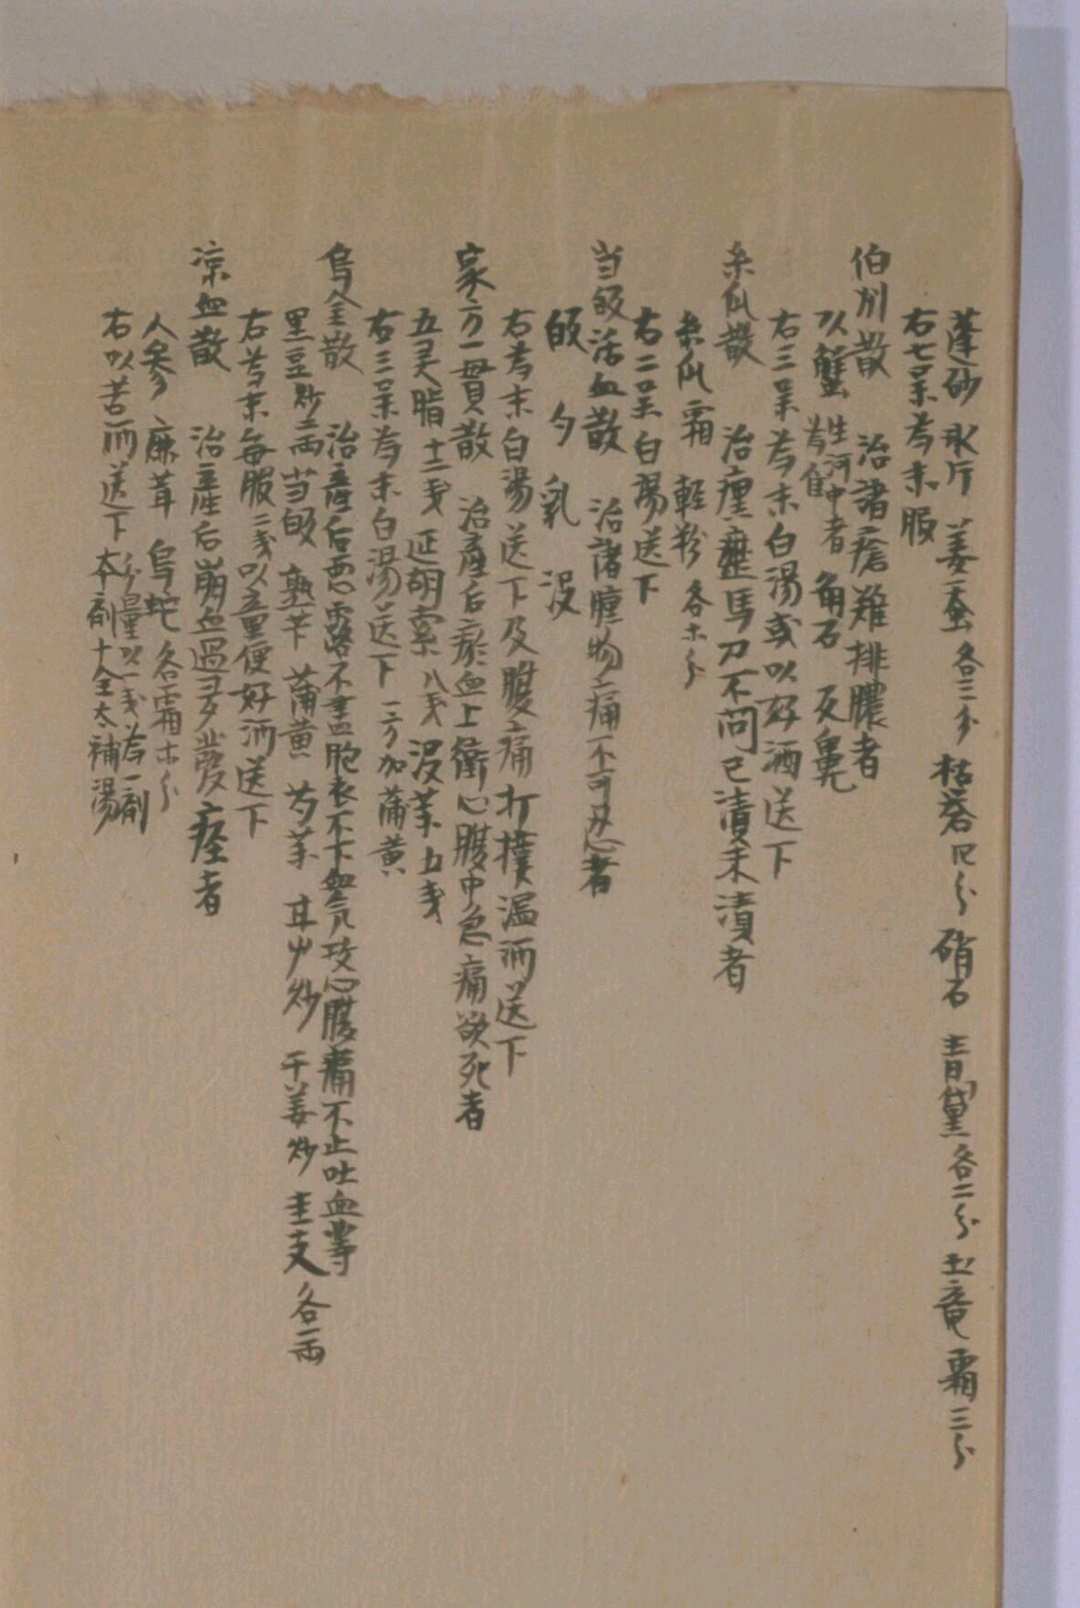 蓬砂 氷片 姜蚕各三分 枯礬四分 硝石 青黛各二分 土竜霜三分
右七味為末服
伯州散 治諸瘡難排膿者
以蟹生河中者為佳 角石 反鼻
右三味為末白湯或以好酒送下
糸瓜散 治瘰癧馬刀不問已潰未潰者
糸瓜霜 軽粉各等分
右二味白湯送下
当皈活血散 治諸腫物痛不可忍者
皈 夕 乳 没
右為末白湯送下及腹痛打撲温酒送下
家方一貫散 治産后瘀血上衝心腹中急痛欲死者
五灵脂十二戋 延胡索八戋 没薬五戋
右三味為末白湯送下 一方加蒲黄
烏金散 治産后悪露不尽胞衣不下血気攻心腹痛不止吐血等
黒豆炒二両 当皈 熟苄 蒲黄 芍薬 甘艸炒 干姜炒 圭支各一両
右為末毎服二戋以童便好酒送下
涼血散 治産后崩血過多出發痙者
人参 鹿茸 烏蛇各霜等分
右以苦酒送下 分量以一戋為一剤 本剤十全大補湯